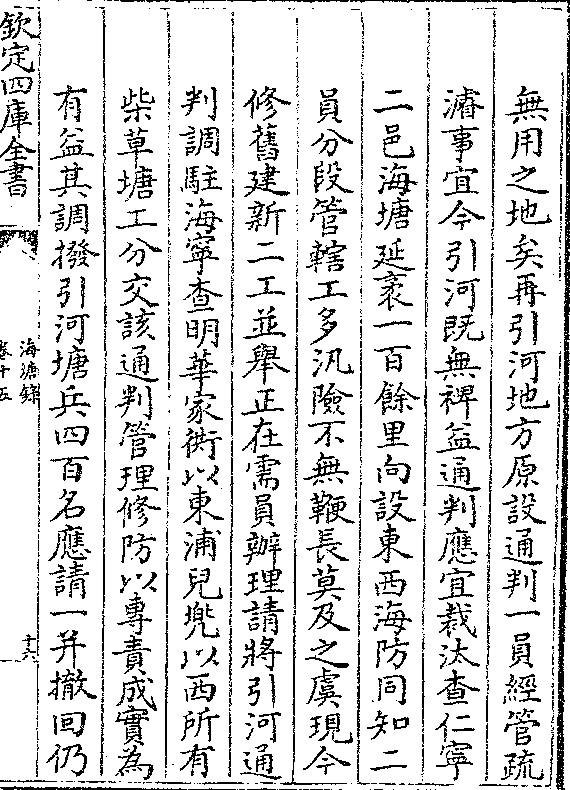 無用之地矣再引河地方原設通判一員經管疏
濬事宜今引河既無裨益通判應宜裁汰查仁寧
二邑海塘延袤一百餘里向設東西海防同知二
員分段管轄工多汛險不無鞭長莫及之虞現今
修舊建新二工並舉正在需員辦理請將引河通
判調駐海寧查明華家衖以東浦兒兠以西所有
柴草塘工分交該通判管理修防以專責成實為
有益其調撥引河塘兵四百名應請一并撤回仍
欽定四庫全書
海塘録
卷十五
十六